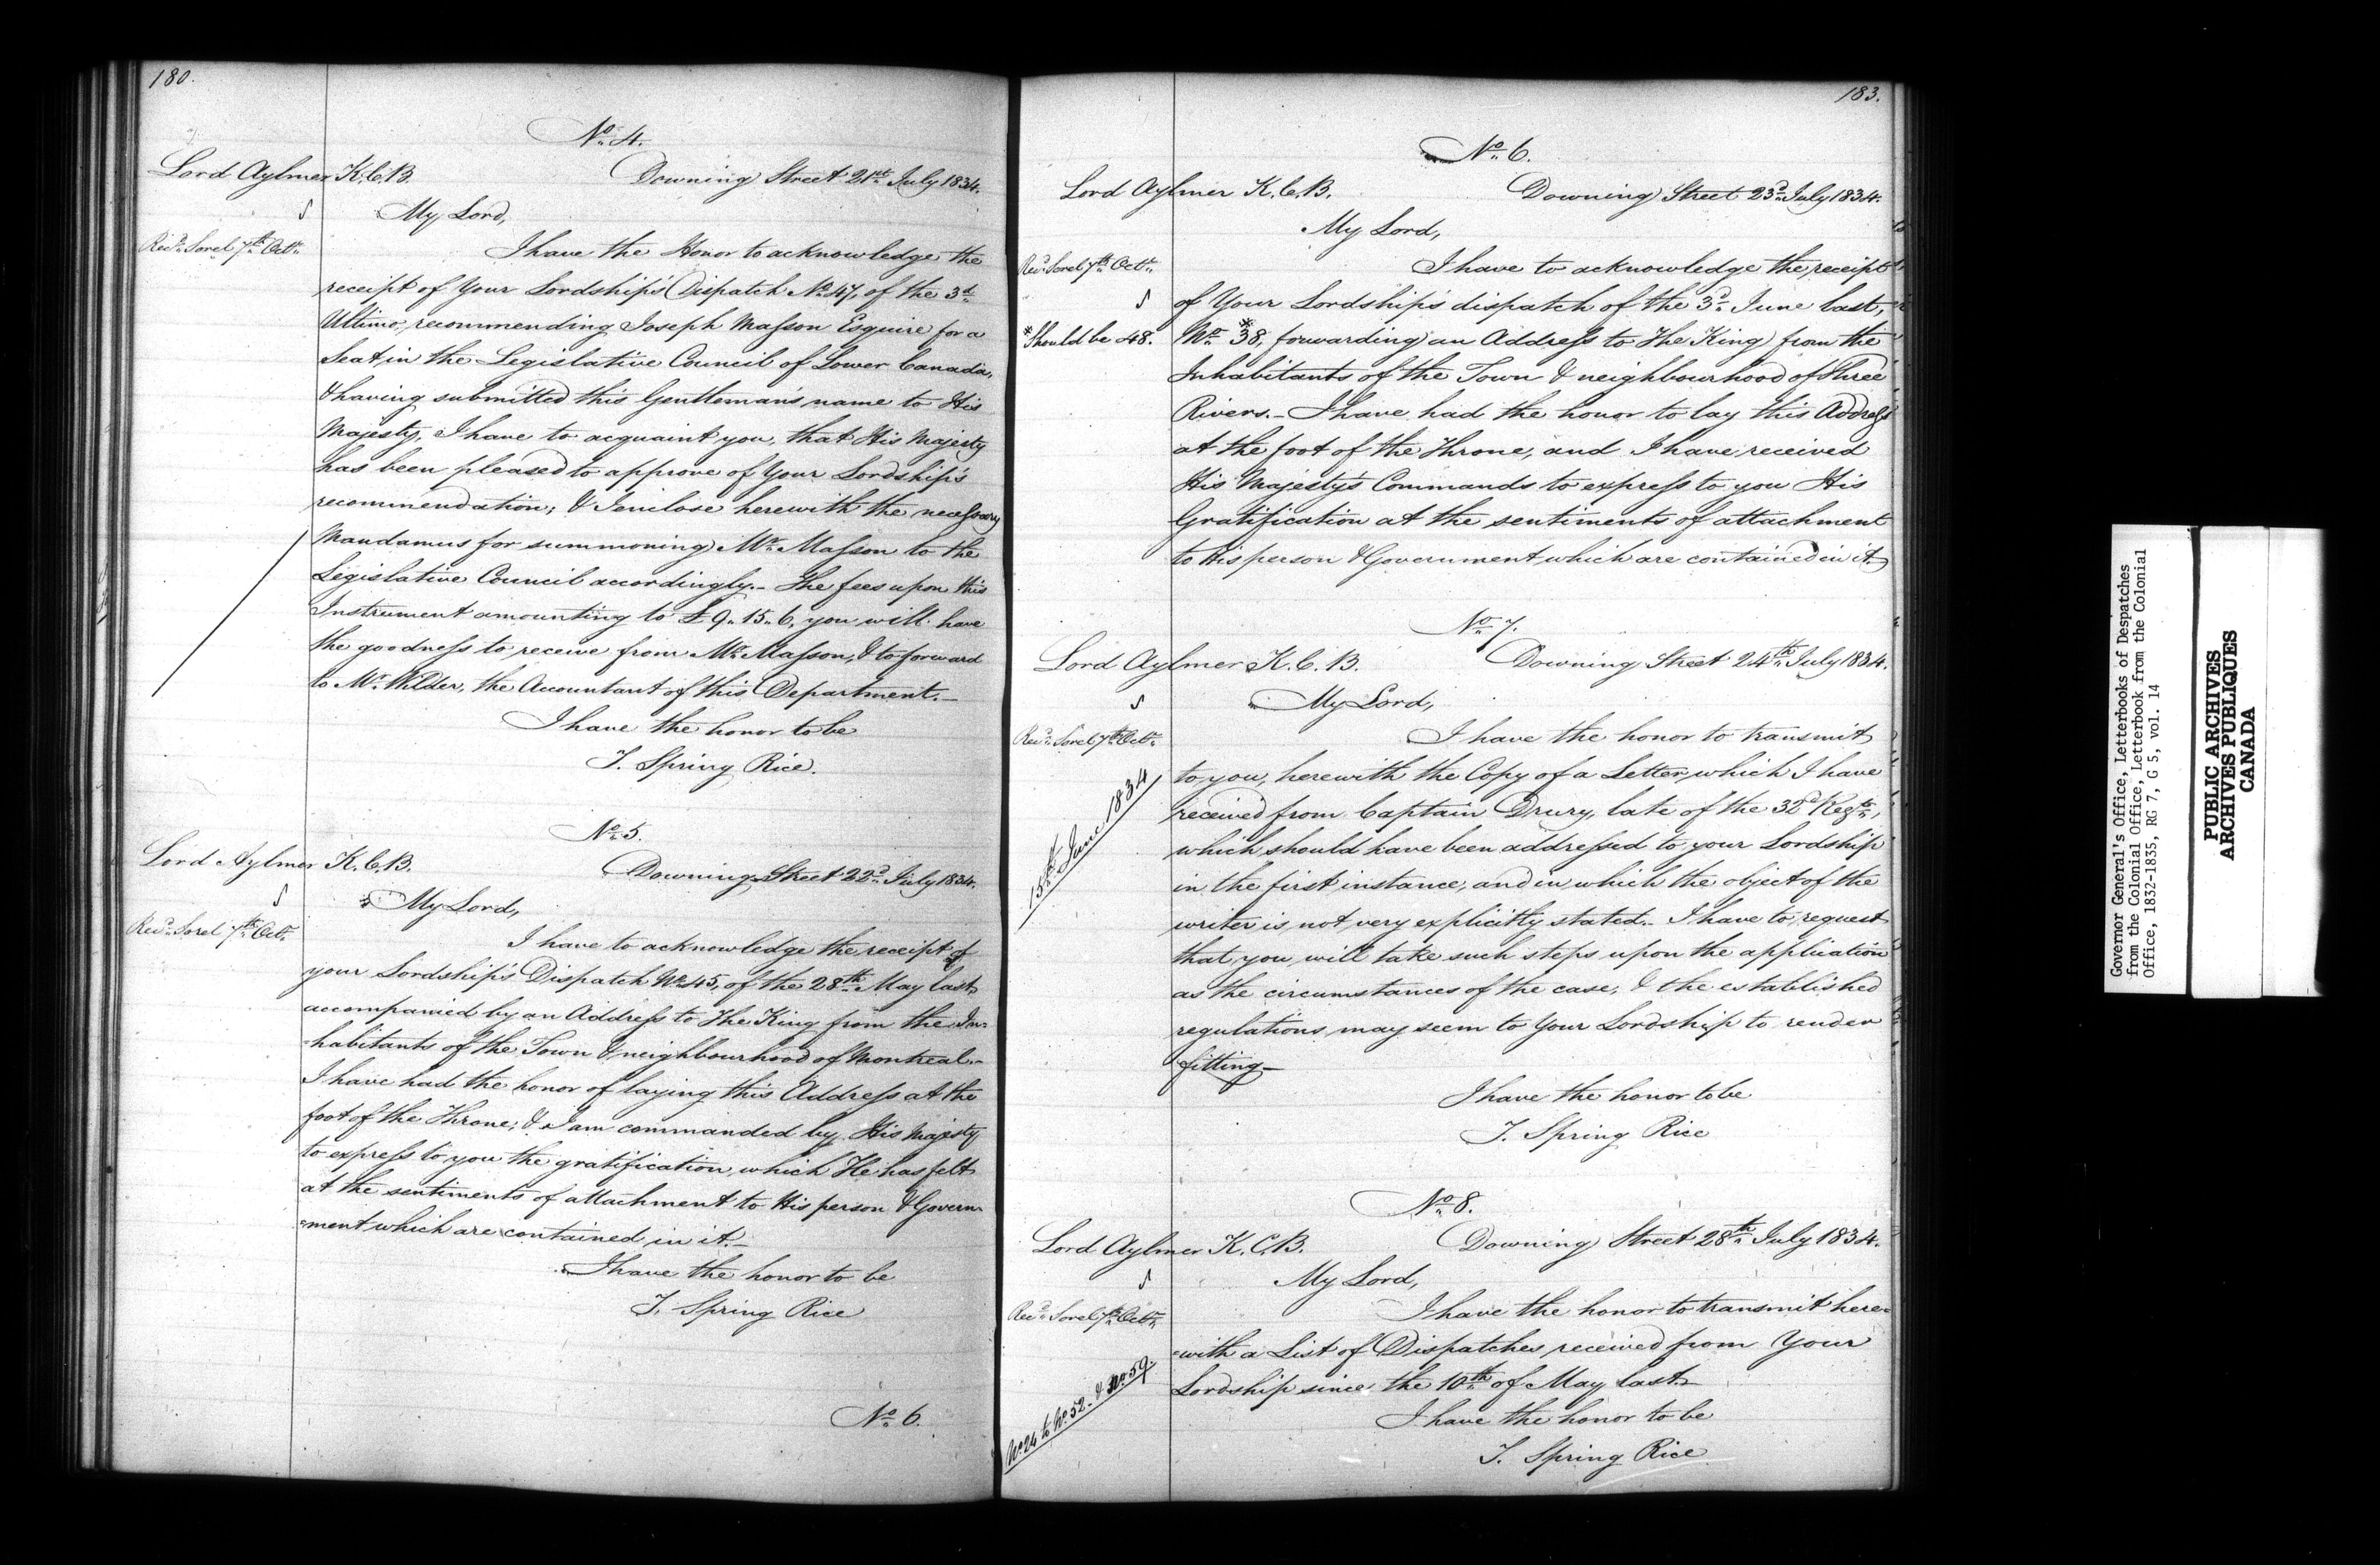 180.
No. 4.
Lord Aylmer K.C.B. Downing Street 21st July 1834.
My Lord,
Recd. Sorel 7th Octr.
I have the Honor to acknowledge the
receipt of Your Lordship's Dispatch No. 47, of the 3d.
Ultimo, recommending Joseph Masson Esquire for a
Seat in the Legislative Council of Lower Canada,
& having submitted this Gentleman's name to His
Majesty, I have to acquaint you, that His Majesty
has been pleased to approve of Your Lordship's
recommendation; & I enclose herewith the necessary
Mandamus for summoning Mr. Masson to the
Legislative Council accordingly.- The fees upon this
Instrument amounting to £9.15.6, you will have
the goodness to receive from Mr. Masson, & to forward
to Mr. Wilder, the Accountant of this Department.-
I have the honor to be
T. Spring Rice.
No. 5.
Lord Aylmer K.C.B. Downing Street 22d. July 1834.
My Lord,
Recd. Sorel 7th Octr.
I have to acknowledge the receipt of
your Lordship's Dispatch No. 45, of the 28th May last,
accompanied by an Address to The King from the In-
=habitants of the Town & neighbourhood of Montreal.-
I have had the honor of laying this Address at the
foot of the Throne; & I am commanded by His Majesty
to express to you the gratification which He has felt
at the sentiments of attachment to His person & Govern-
=ment which are contained in it.-
I have the honor to be
T. Spring Rice
No. 6.
183.
No. 6.
Lord Aylmer K.C.B. Downing Street 23d. July 1834.
My Lord,
Recd. Sorel 7th Octr.
I have to acknowledge the receipt
of Your Lordship's dispatch of the 3d. June last,
*Should be 48.
No. *38, forwarding an Address to The King from the
Inhabitants of the Town & neighbourhood of Three
Rivers.- I have had the honor to lay this Address
at the foot of the Throne, and I have received
His Majesty's Commands to express to you His
Gratification at the sentiments of attachment
to His person & Government which are contained in it.
No. 7.
Lord Aylmer K.C.B. Downing Street 24th July 1834.
My Lord,
Recd. Sorel 7th Octr.
I have the honor to transmit
15th June 1834
to you, herewith the Copy of a Letter which I have
received from Captain Drury, late of the 32d Regt.,
which should have been addressed to your Lordship
in the first instance, and in which the object of the
writer is not very explicitly stated.- I have to request
that you will take such steps upon the application
as the circumstances of the case, & the established
regulations may seem to Your Lordship to render
fitting-
I have the honor to be
T. Spring Rice
No. 8.
Lord Aylmer K.C.B. Downing Street 28th July 1834.
My Lord,
Recd. Sorel 7th Octr.
I have the honor to transmit here=
=with a List of Dispatches received from Your
No. 24 to No. 52 & No. 59.
Lordship since the 10th of May last.
I have the honor to be
T. Spring Rice
Governor General's Office, Letterbooks of Despatches
from the Colonial Office, Letterbook from the Colonial
Office, 1832-1835, RG 7, G 5, vol. 14
PUBLIC ARCHIVES
ARCHIVES PUBLIQUES
CANADA